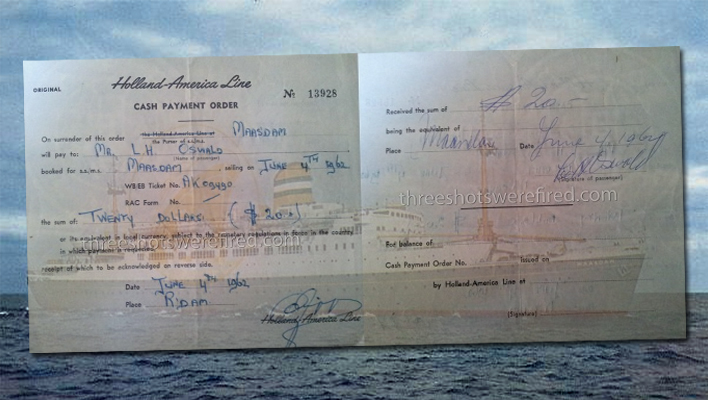 ORIGINAL
Holland-America Line
No 13928
CASH PAYMENT ORDER
On surrender of this order the Holland-America Line at MAASDAM
the Purser of s.s/m.s.
will pay to: MR. L.H. OSWALD
(Name of passenger)
booked for s.s/m.s. MAASDAM sailing on JUNE 4TH 1962
WB/EB Ticket No.
RAC Form No. —
the sum of: TWENTY DOLLARS ($ 20.-)
or its equivalent in local currency, subject to the monetary regulations in force in the country
in which payment is requested,
receipt of which to be acknowledged on reverse side.
threeshotswerefired.com
Date JUNE 4TH 1962
Place R'DAM
Holland-America Line
Received the sum of $ 20.-
being the equivalent of
Place Maasdam Date June 4, 1962
(Signature of passenger)
threeshotswerefired.com
For balance of
Cash Payment Order No. issued on
by Holland-America Line at
(Signature)